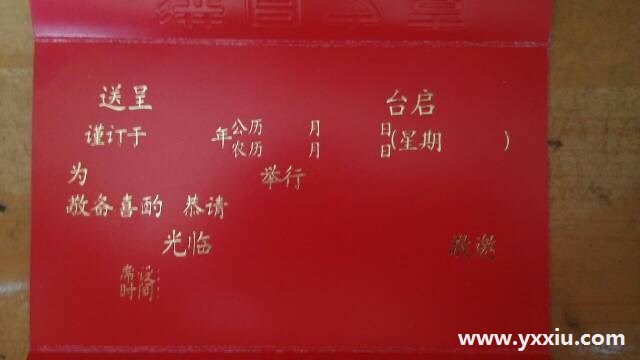 送呈 台启
谨订于 年 公历 月 日 (星期 )
农历 月 日
为 举行
敬备喜酌 恭请
光临 敬邀
席设:
时间:
www.yxxiu.com